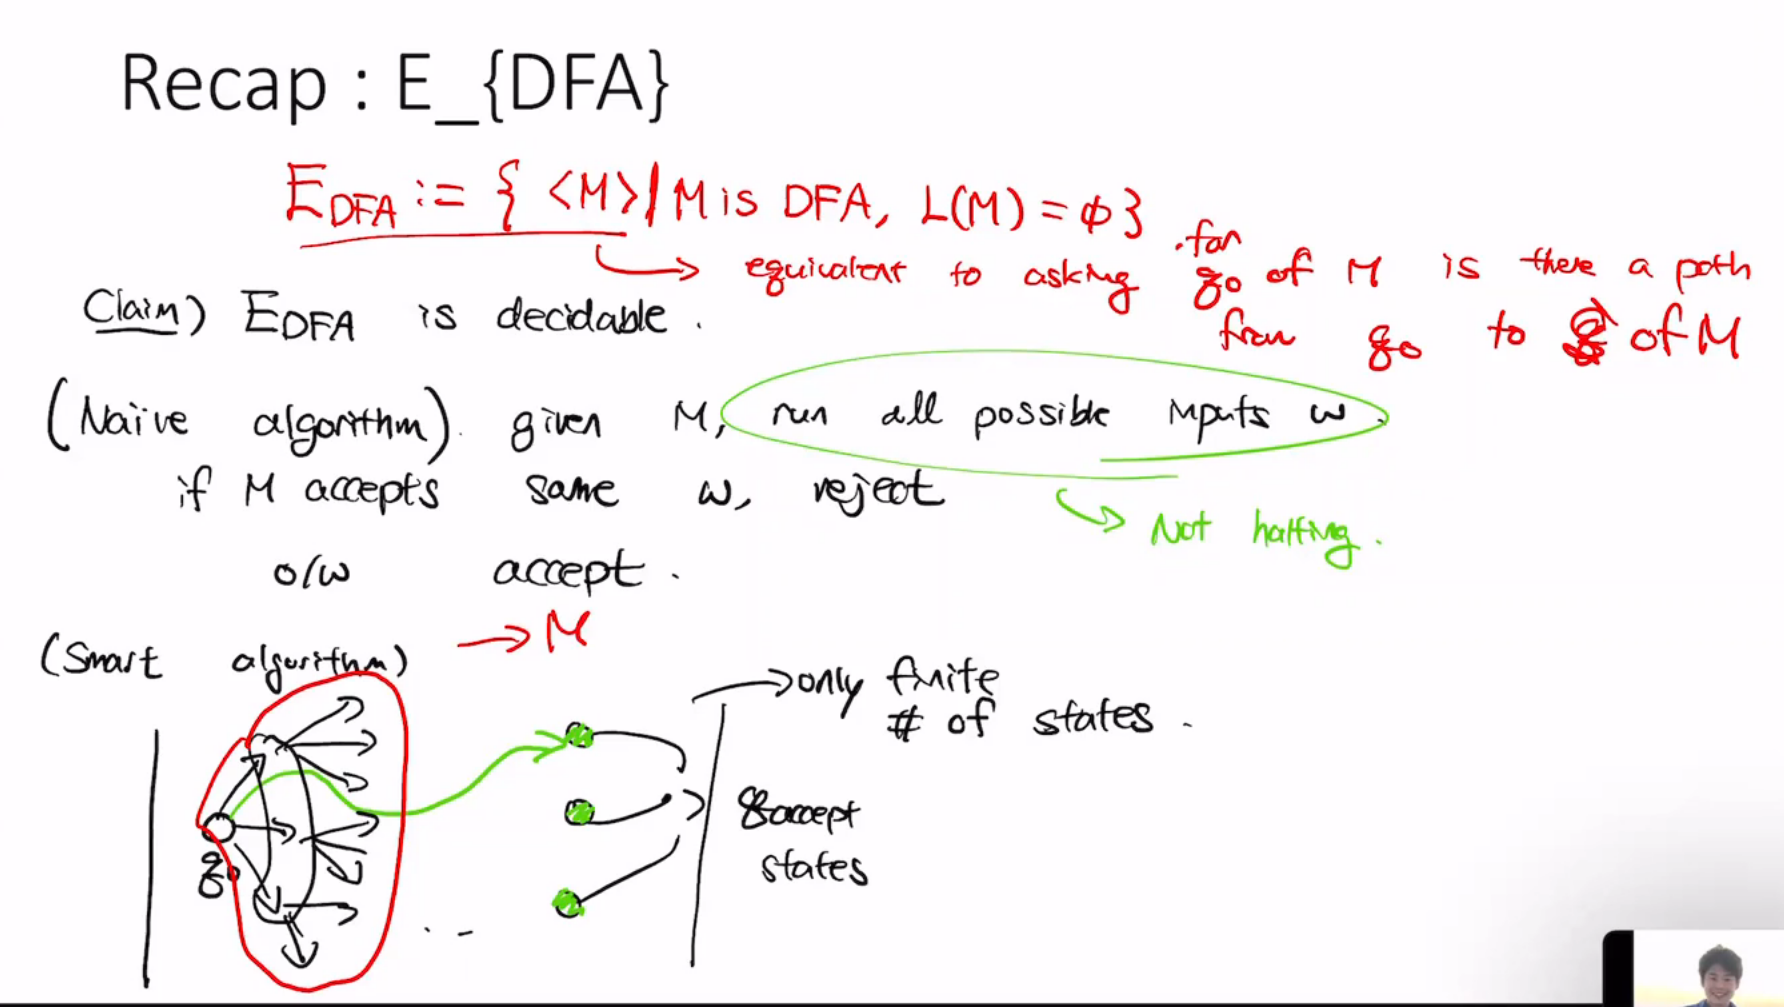 Recap : E_{DFA}
E_DFA := { <M> | M is DFA, L(M) = ϕ}
equivalent to asking for q0 of M is there a path
from q0 to of M
Claim) E_DFA is decidable.
(Naïve algorithm). given M, run all possible inputs w.
if M accepts some w, reject
Not halting.
o/w accept.
(Smart algorithm) → M
→ only finite
# of states.
q0
accept
states